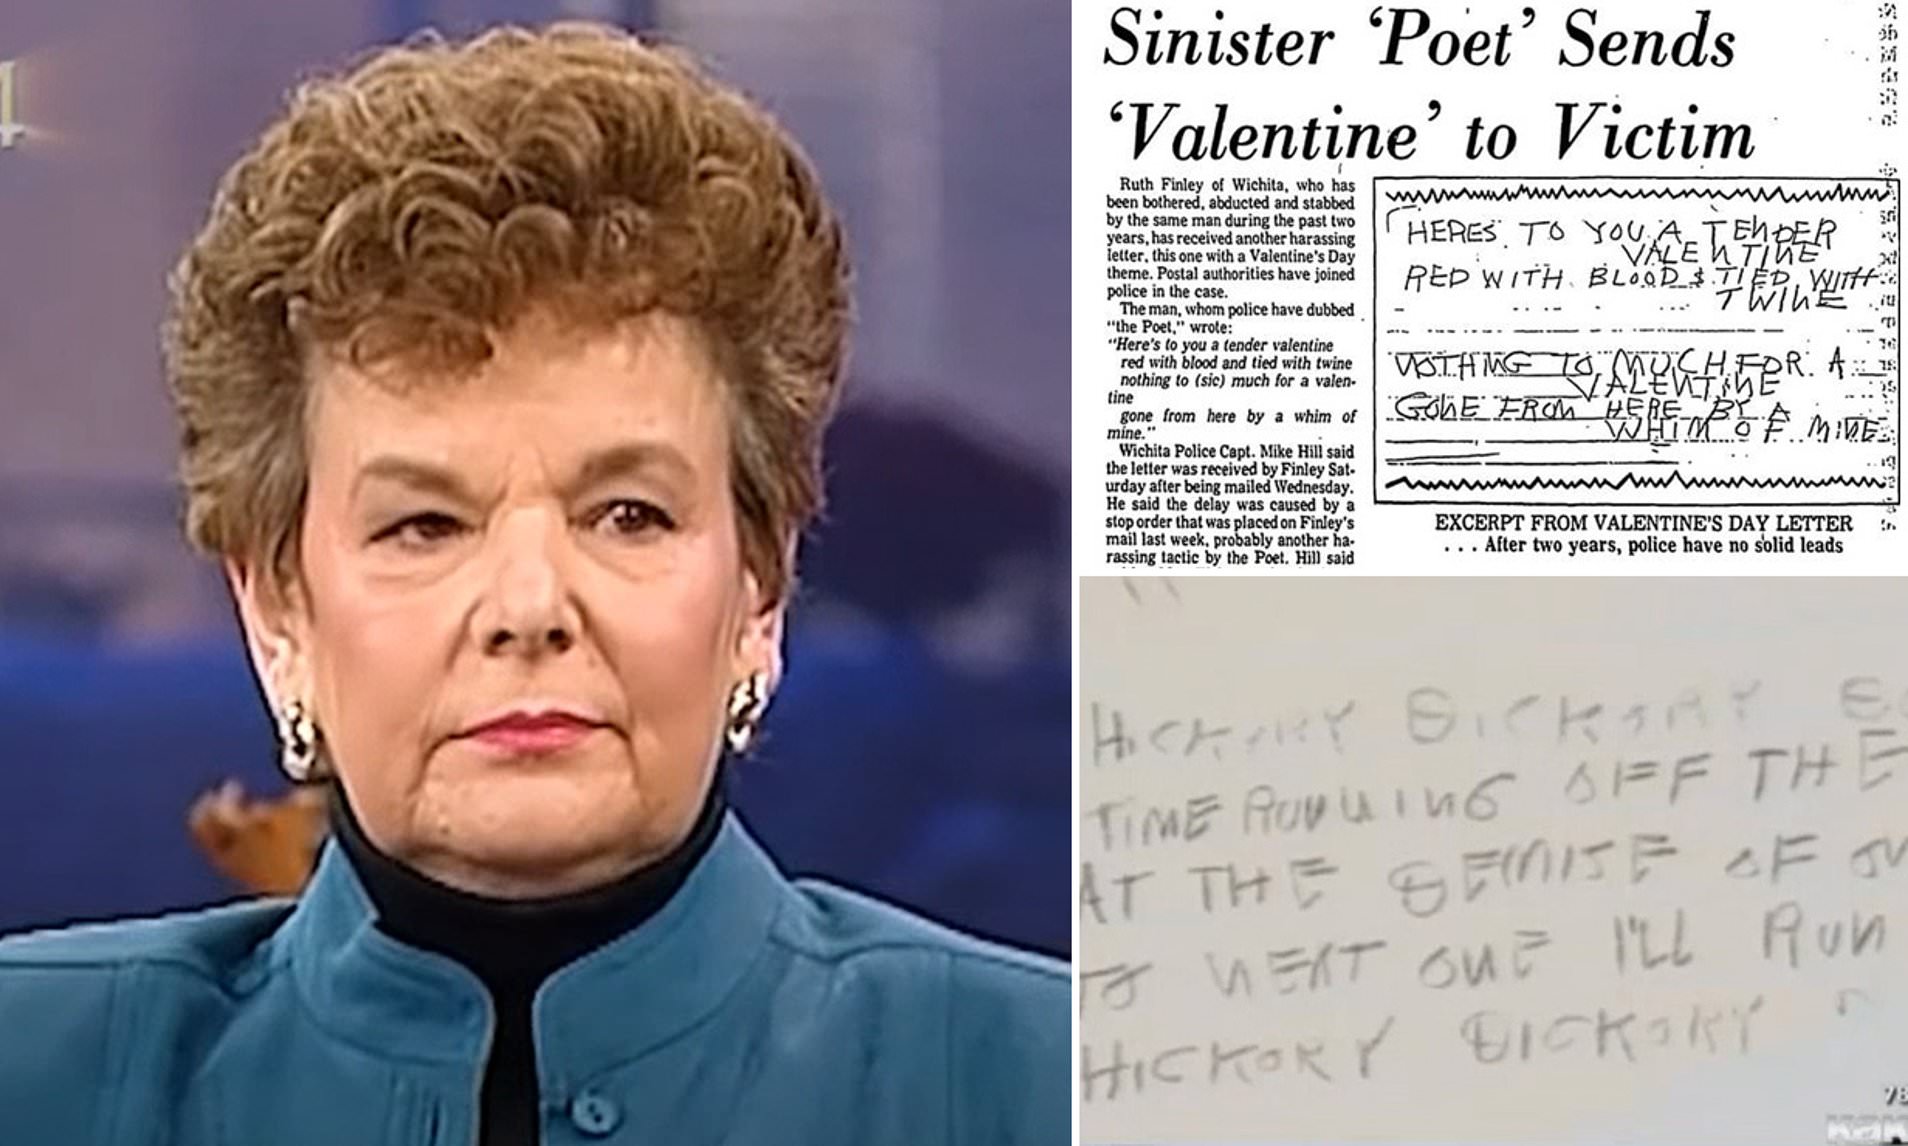 4
Sinister ‘Poet’ Sends
‘Valentine’ to Victim
Ruth Finley of Wichita, who has
been bothered, abducted and stabbed
by the same man during the past two
years, has received another harassing
letter, this one with a Valentine's Day
theme. Postal authorities have joined
police in the case.
The man, whom police have dubbed
"the Poet," wrote:
"Here's to you a tender valentine
red with blood and tied with twine
nothing to (sic) much for a valen-
tine
gone from here by a whim of
mine."
Wichita Police Capt. Mike Hill said
the letter was received by Finley Sat-
urday after being mailed Wednesday.
He said the delay was caused by a
stop order that was placed on Finley's
mail last week, probably another ha-
rassing tactic by the Poet. Hill said
HERES TO YOU A TENDER
VALENTINE
RED WITH BLOOD & TIED WITH
TWINE
NOTHING TO MUCH FOR A
VALENTINE
GONE FROM HERE BY A
WHIM OF MINE
EXCERPT FROM VALENTINE'S DAY LETTER
. . . After two years, police have no solid leads
HICKORY DICKORY
TIME RUNNING OFF THE
AT THE DEMISE OF
TO NEXT ONE I'LL RUN
HICKORY DICKORY
78